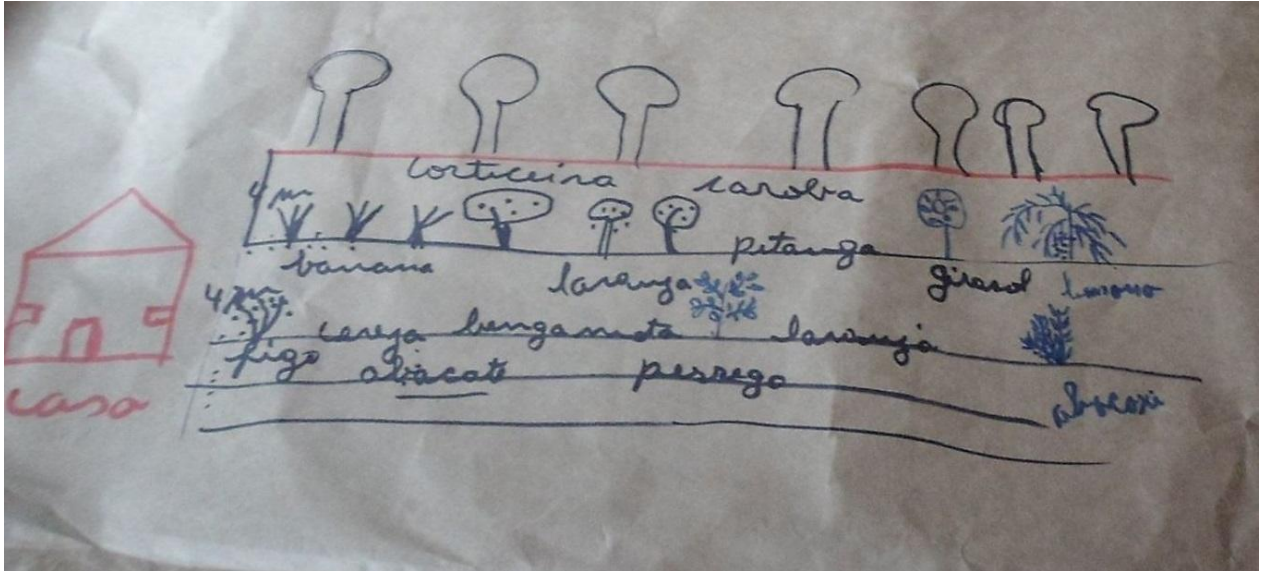 corticeira carova
4 m
pitanga
banana laranja girasol
4 m
cereja bergamota laranja
figo abacate pessego
abacaxi
casa